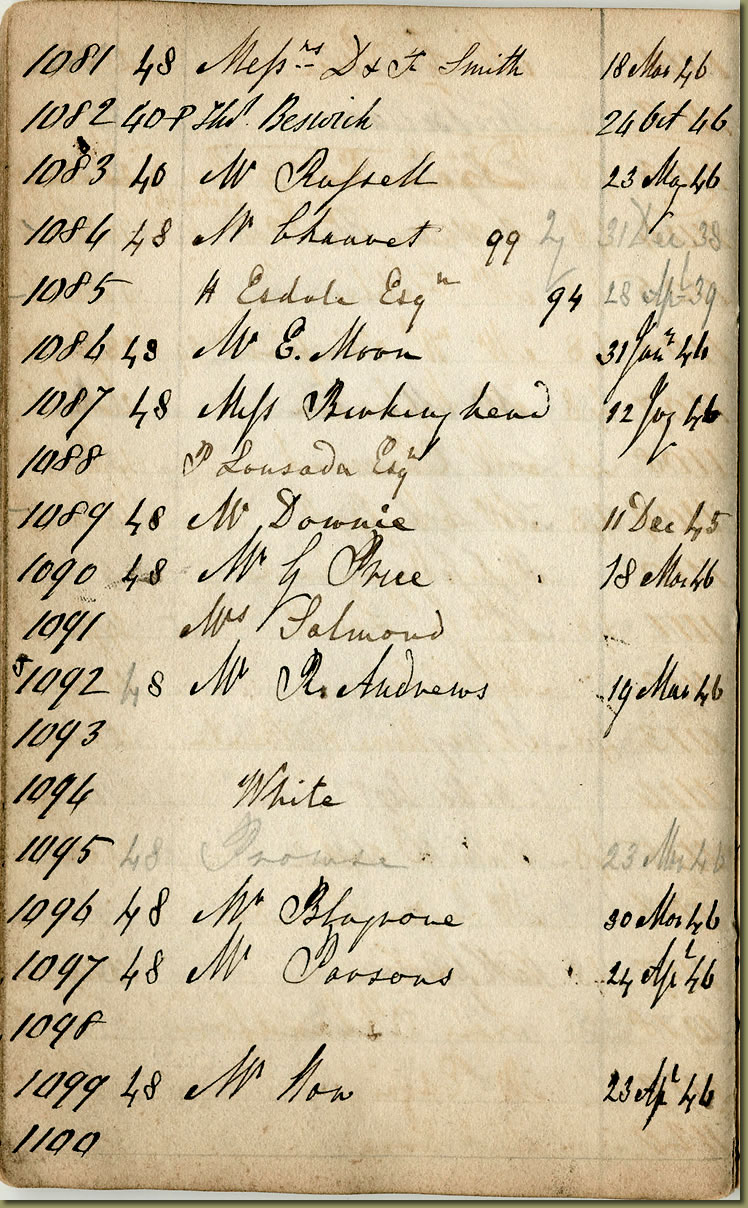 1081 48 Messrs D & F Smith 18 Mar 46
1082 40 P Thos. Beswick 24 Oct 46
1083 40 Mr Russell 23 May 46
1084 48 Mr Chauvet 99 31 Dec 38
1085 H Esdale Esqr 94 28 Apl 39
1086 48 Mr E. Moon 31 Jany 46
1087 48 Mess 12 46
1088 P Lousada Esqr
1089 48 Mr Downie 11 Dec 45
1090 48 Mr G Price 18 Mar 46
1091 Mrs Salmond
1092 48 Mr R. Andrews 19 Mar 46
1093
1094 White
1095 48 Prowse 23 Mar 46
1096 48 Mr Blagrove 30 Mar 46
1097 48 Mr Parsons 24 Apl 46
1098
1099 48 Mr How 23 Apl 46
1100